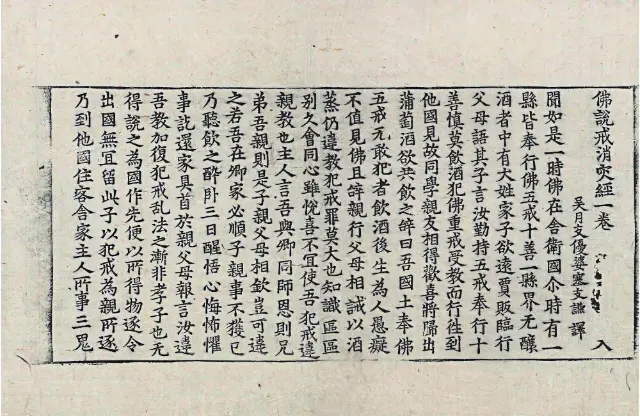 佛說戒消灾經一卷 入
吳月支優婆塞支謙譯
聞如是一時佛在舍衛國尒時有一
縣皆奉行佛五戒十善一縣界无釀
酒者中有大姓家子欲遠賈販臨行
父母語其子言汝勤持五戒奉行十
善慎莫飲酒犯佛重戒受教而行徃到
他國見故同學親友相得歡喜將歸出
蒲萄酒欲共飲之辝曰吾國土奉佛
五戒无敢犯者飲酒後生為人愚癡
不值見佛且辝親行父母相誡以酒
蒸仍違教犯戒罪莫大也知識區區
別久會同心雖悅喜不宜使吾犯戒違
親教也主人言吾與卿同師恩則兄
弟吾親則是子親父母相欽豈可違
之若吾在卿家必順子親事不獲已
乃聽飲之醉卧三日醒悟心悔怖懼
事訖還家具首於親父母報言汝違
吾教加復犯戒乱法之漸非孝子也无
得說之為國作先便以所得物逐令
出國無宜留此子以犯戒為親所逐
乃到他國住客舍家主人所事三鬼